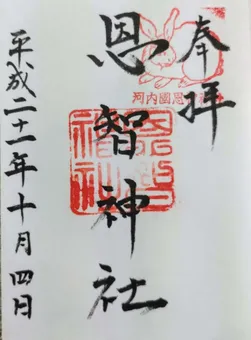 奉拝
河内國恩智神社
恩智神社
平成二十一年十月四日